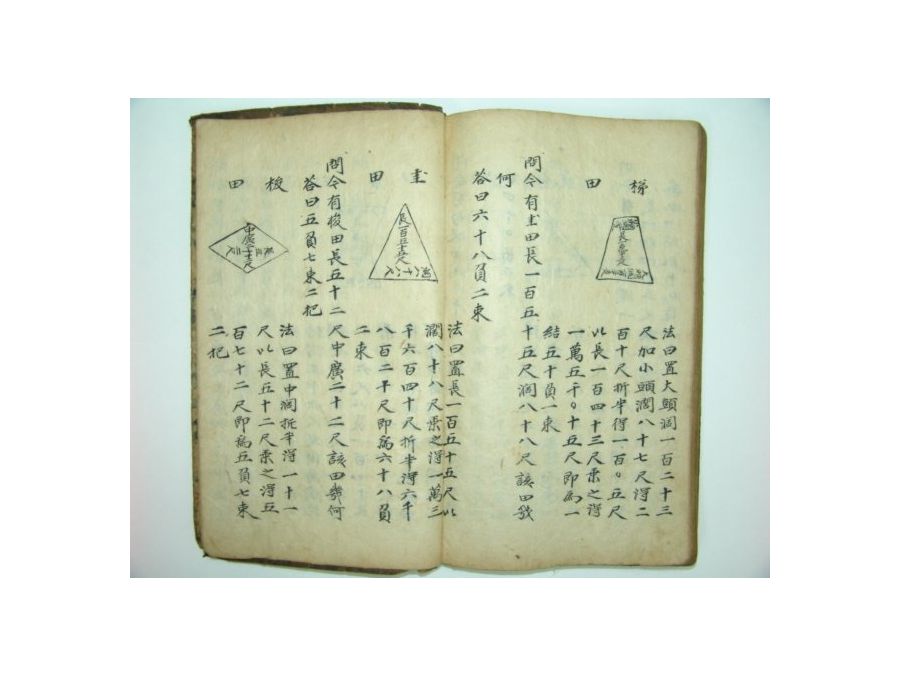 梯田
法曰置大頭濶一百二十三
尺加小頭濶八十七尺得二
百十尺折半得一百〇五尺
以長一百四十三尺乘之得
一萬五千〇十五尺即爲一
結五十負一束
問今有圭田長一百五十五尺濶八十八尺該田幾
何
答曰六十八負二束
圭田
長一百五十五尺
濶八十八尺
法曰置長一百五十五尺以
濶八十八尺乘之得一萬三
千六百四十尺折半得六千
八百二十尺即爲六十八負
二束
問今有梭田長五十二尺中廣二十二尺該田幾何
答曰五負七束二把
梭田
中廣二十二尺
長五十二尺
法曰置中濶折半得一十一
尺以長五十二尺乘之得五
百七十二尺即爲五負七束
二把